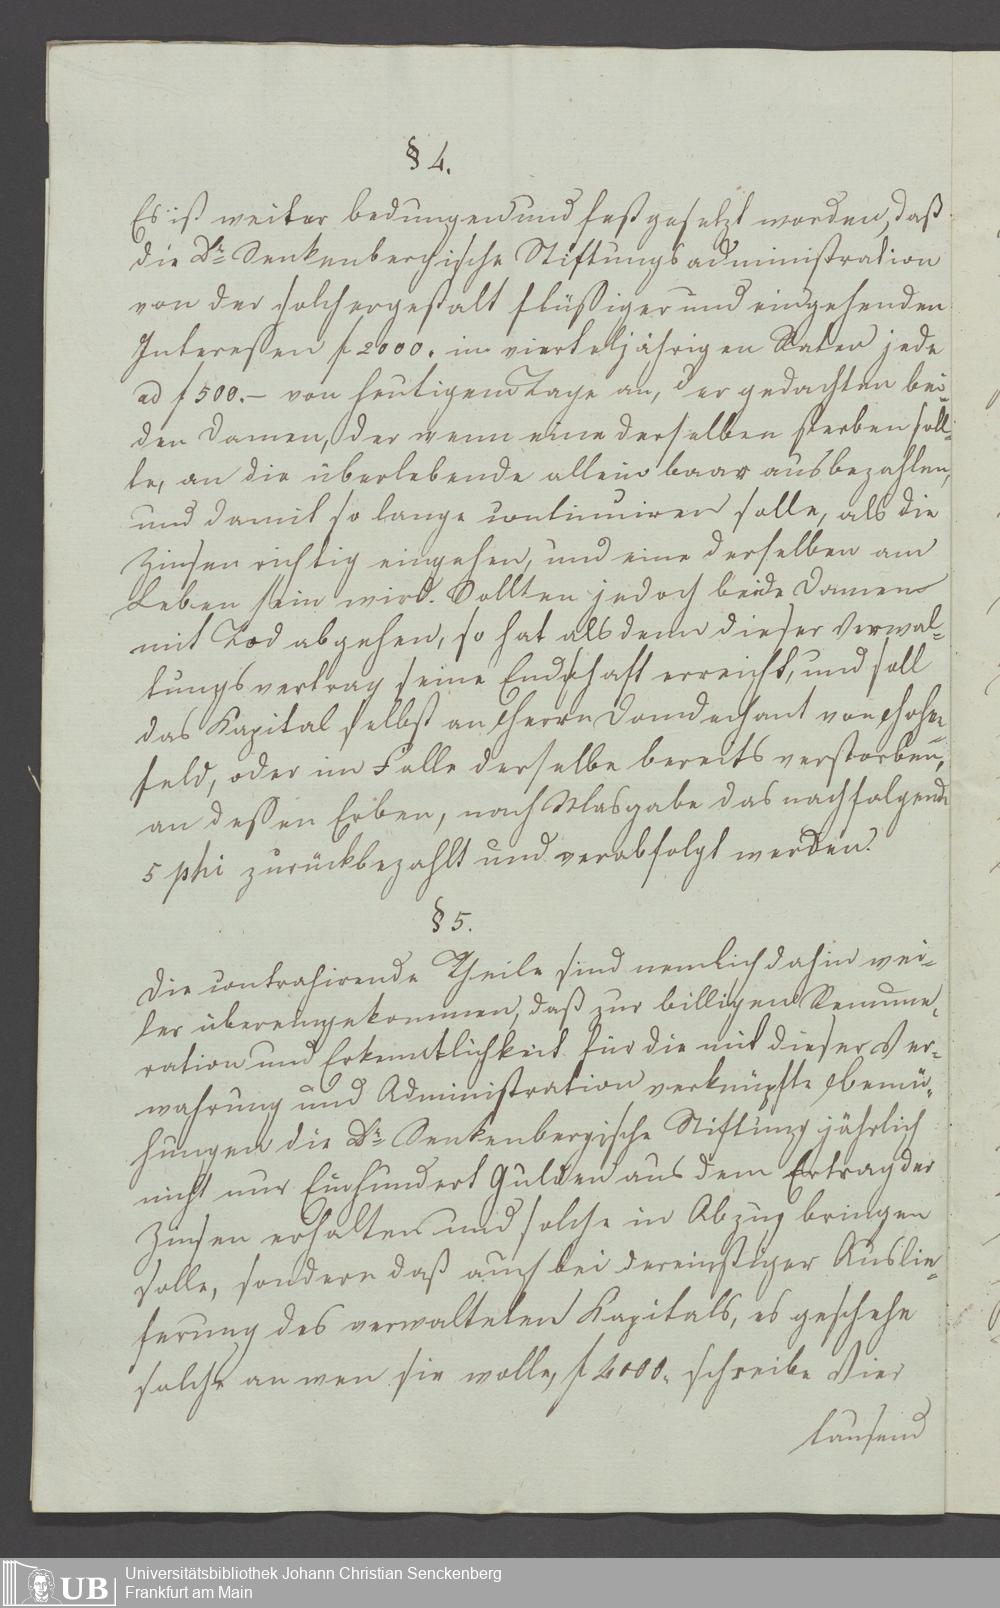 § 4.
Es ist weiter bedungen und festgesetzt worden, daß
die Dr. Senkenbergische Stiftungsadministration
von der solchergestalt flüßiger und eingehenden
Intereßen f 2000. in vierteljährigen Raten jede
ad f 500.– von heutigem Tage an, der gedachten bei-
den Damen, der wenn eine derselben sterben soll-
te, an die überlebende allein baar ausbezahlen,
und damit so lange continuiren solle, als die
Zinsen richtig eingehen, und eine derselben am
Leben sein wird. Sollten jedoch beide Damen
mit Tod abgehen, so hat alsdenn dieser Verwal-
tungsvertrag seine Endschaft erreicht, und soll
das Kapital selbst an Herrn Domdechant von Hohen-
feld, oder im Falle derselbe bereits verstorben,
an deßen Erben, nach Masgabe das nachfolgende
5 phi zurückbezahlt und verabfolgt werden.
§ 5.
Die contrahirende Theile sind nemlich dahin wei-
ter übereingekommen, daß zur billigen Remune-
ration und Erkenntlichkeit für die mit dieser Ver-
wahrung und Administration verknüpfte Bemü-
hungen die Dr. Senkenbergische Stiftung jährlich
nicht nur Einhundert Gulden aus dem Ertrag der
Zinsen erhalten und solche in Abzug bringen
solle, sondern daß auch bei dereinstiger Auslie-
ferung des verwalteten Kapitals, es geschehe
solche an wen sie wolle, f 4000. schreibe Vier
tausend
UB Universitätsbibliothek Johann Christian Senckenberg
Frankfurt am Main